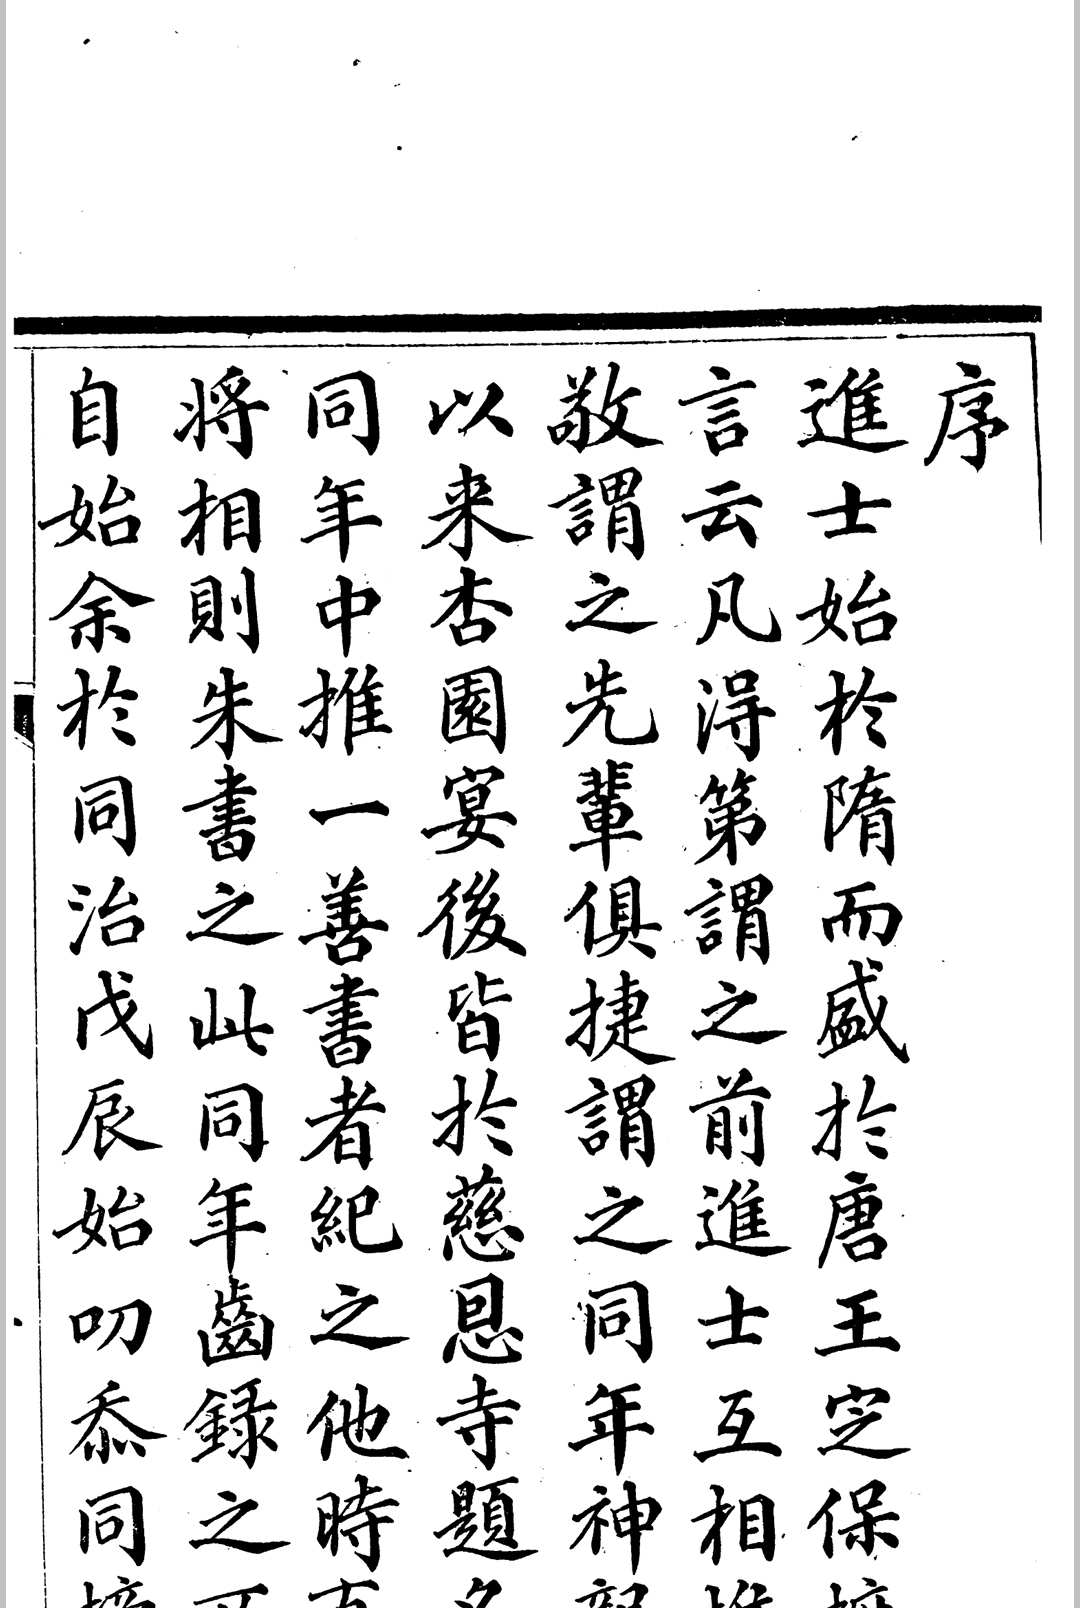 序
進士始於隋而盛於唐王定保
言云凡淂第謂之前進士互相
敬謂之先輩俱捷謂之同年神
以来杏園宴後皆於慈恩寺題
同年中推一善書者紀之他時
將相則朱書之此同年齒録之
自始余於同治戊辰始叨忝同